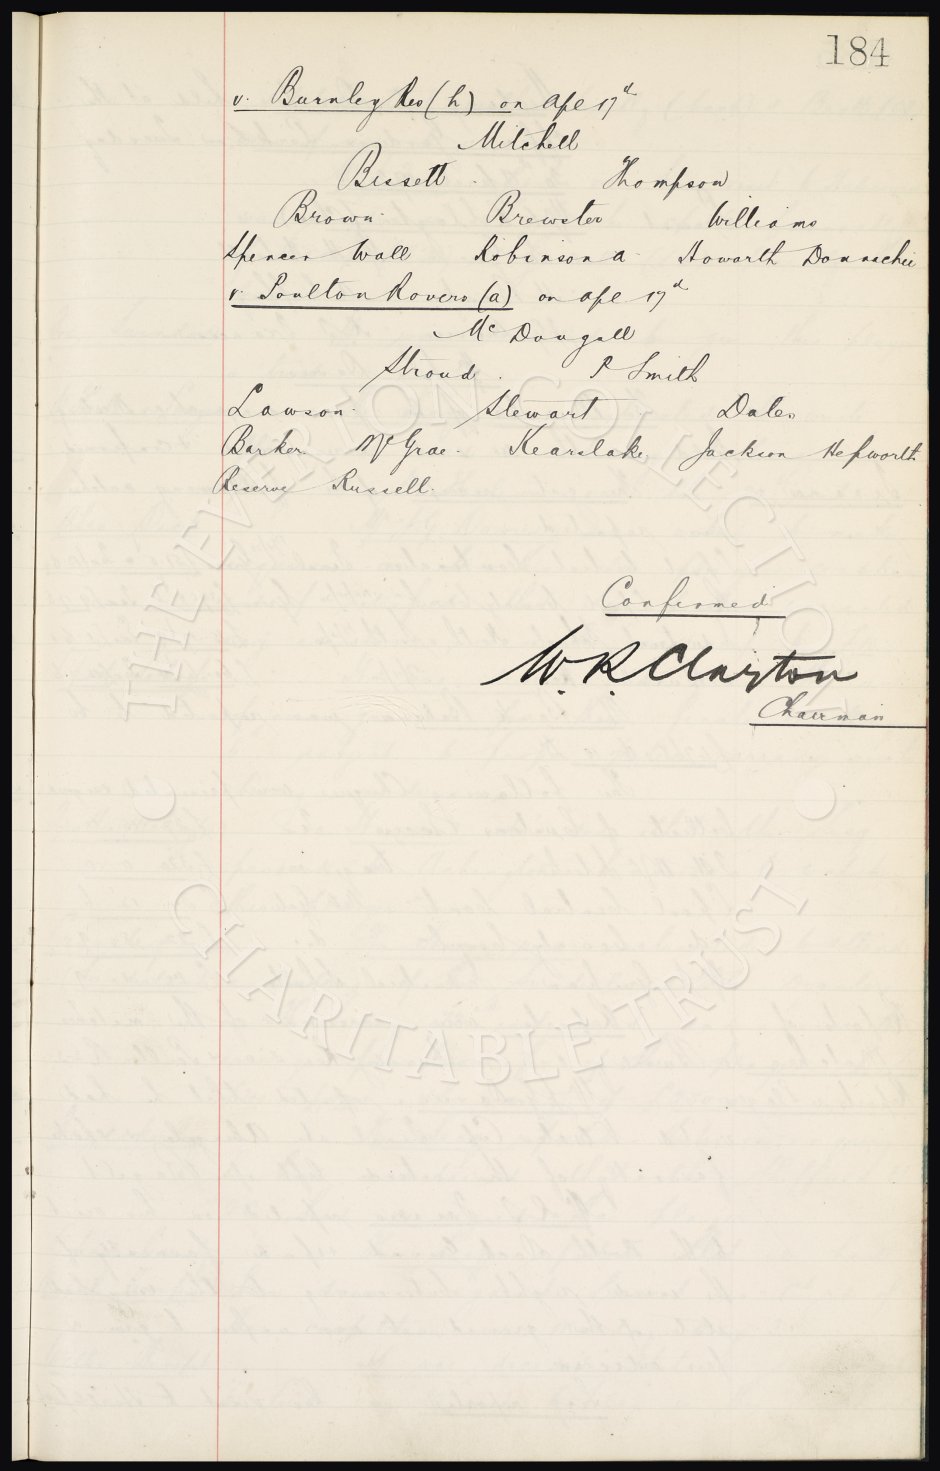 184
v. Burnley Res (h) on Apl 17th
Mitchell
Bissett Thompson
Brown Brewster Williams
Spencer Wall Robinson A Howarth Donnachie
v Poulton Rovers (a) on Apl 17th
McDougall
Stroud P Smith
Lawson Stewart Dales
Barker McGrae Kearslake Jackson Hepworth
Reserve Russell.
Confirmed
W. R. Clayton
Chairman
THE EVERTON COLLECTION
CHARITABLE TRUST